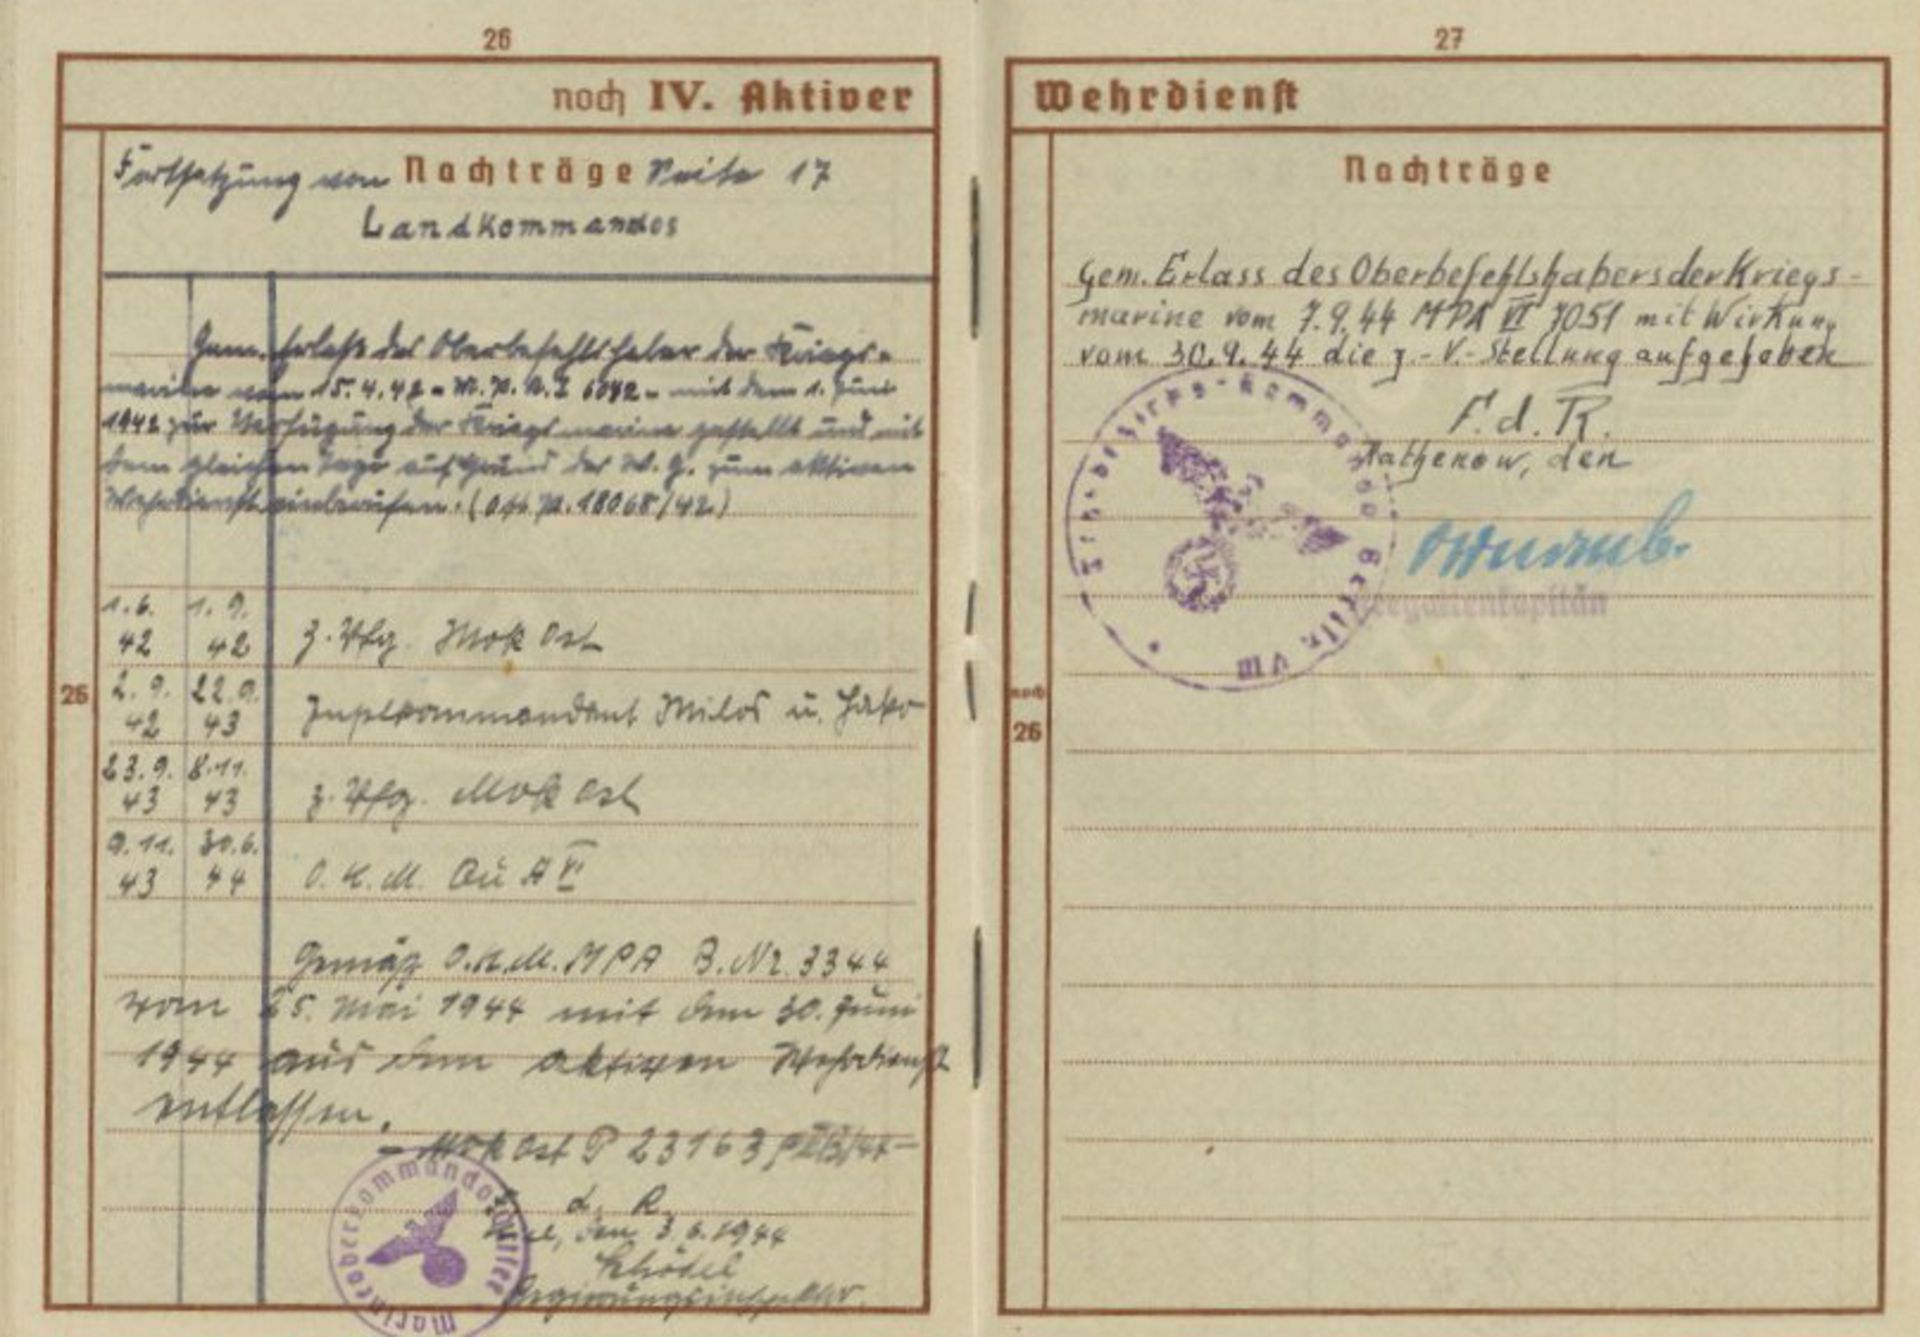 26
noch IV. Aktiver
Fortsetzung von Nachträge Seite 17
Landkommandos
Gem. Erlaß des Oberbefehlshaber der Kriegs-
marine vom 15.4.42 - M.P.A. I 6042 - mit dem 1. Juni
1942 zur Verfügung der Kriegsmarine gestellt und mit
dem gleichen Tage auf Grund des W. G. zum aktiven
Wehrdienst einberufen. (Off. P. 18068/42)
1.6. 42 1.9. 42 z. Vfg. Mok Ost
26
2.9. 42 22.9. 43 Inselkommandant Milos u.
23.9. 43 8.11. 43 z. Vfg. Mok Ost
9.11. 43 30.6. 44 O.K.M. Qu A VI
Gemäß O.K.M. MPA B.Nr. 3344
vom 25. Mai 1944 mit dem 30. Juni
1944 aus dem aktiven Wehrdienst
entlassen.
- MOK Ost P 23163
d. R.
Kiel, den 3.6.1944
Schödel
Regierungsinspektor.
Marineoberkommando
27
Wehrdienst
Nachträge
Gem. Erlass des Oberbefehlshabers der Kriegs-
marine vom 7.9.44 MPA VI 7051 mit Wirkung
vom 30.9.44 die z.-V.-Stellung aufgehoben
F. d. R.
Rathenow, den
Fregattenkapitän
Wehrbezirks-Kommando Berlin VIII
noch
26